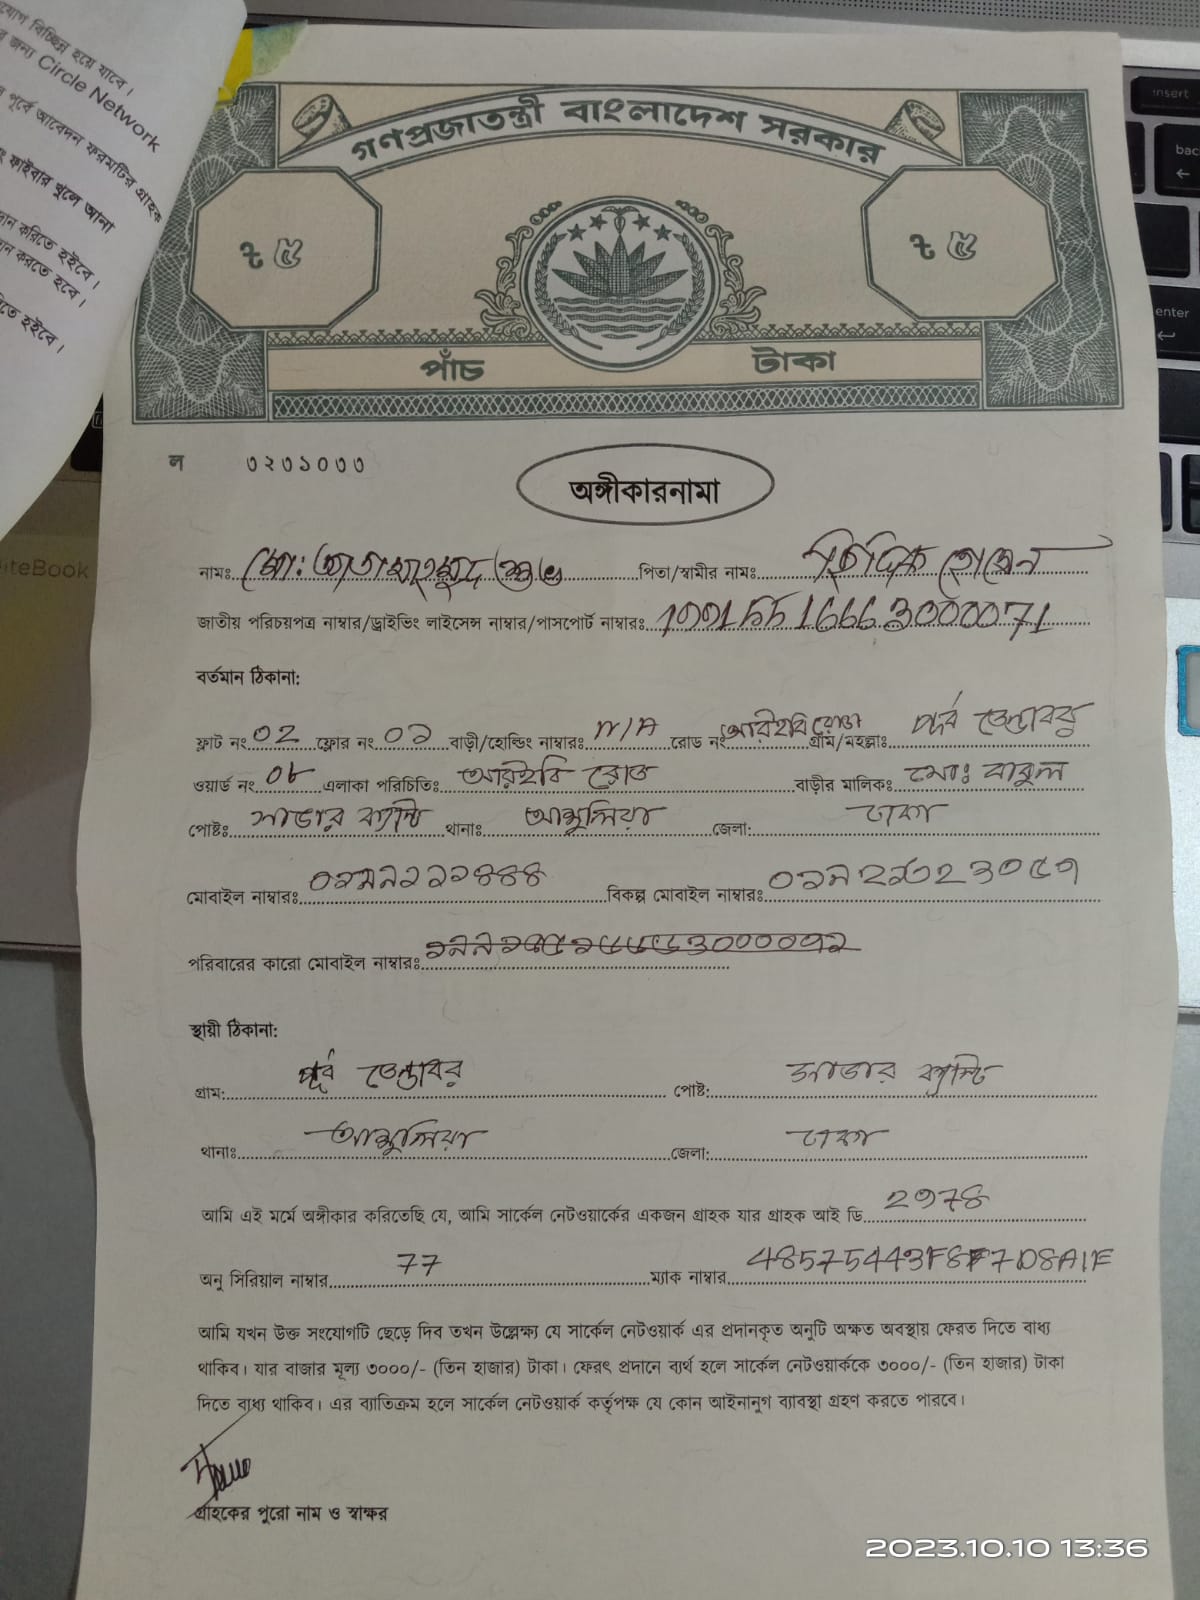 যোগ বিচ্ছিন্ন হয়ে যাবে।
জন্য Circle Network
পূর্বে আবেদন ফরমটির গ্রাহক
ফাইবার খুলে আনা
দান করিতে হইবে।
করতে হবে।
তে হইবে।
insert
enter
iteBook
গণপ্রজাতন্ত্রী বাংলাদেশ সরকার
৳ ৫ ৳ ৫
পাঁচ টাকা
ল ৩২৩১০৩৩
অঙ্গীকারনামা
নামঃ মোঃ পিতা/স্বামীর নামঃ হোসেন
জাতীয় পরিচয়পত্র নাম্বার/ড্রাইভিং লাইসেন্স নাম্বার/পাসপোর্ট নাম্বারঃ
বর্তমান ঠিকানা:
ফ্লাট নং 02 ফ্লোর নং ০১ বাড়ী/হোল্ডিং নাম্বারঃ N/A রোড নং আরইবি রোড গ্রাম/মহল্লাঃ পূর্ব ডেন্ডাবর
ওয়ার্ড নং ০৮ এলাকা পরিচিতিঃ আরইবি রোড বাড়ীর মালিকঃ মোঃ বাবুল
পোষ্টঃ সাভার ক্যান্ট থানাঃ আশুলিয়া জেলা: ঢাকা
মোবাইল নাম্বারঃ বিকল্প মোবাইল নাম্বারঃ
পরিবারের কারো মোবাইল নাম্বারঃ
স্থায়ী ঠিকানা:
গ্রাম: পূর্ব ডেন্ডাবর পোষ্ট: সাভার ক্যান্ট
থানাঃ আশুলিয়া জেলা: ঢাকা
আমি এই মর্মে অঙ্গীকার করিতেছি যে, আমি সার্কেল নেটওয়ার্কের একজন গ্রাহক যার গ্রাহক আই ডি
অনু সিরিয়াল নাম্বার 77 ম্যাক নাম্বার 48575443F8F7D8A1E
আমি যখন উক্ত সংযোগটি ছেড়ে দিব তখন উল্লেক্ষ্য যে সার্কেল নেটওয়ার্ক এর প্রদানকৃত অনুটি অক্ষত অবস্থায় ফেরত দিতে বাধ্য
থাকিব। যার বাজার মূল্য ৩০০০/- (তিন হাজার) টাকা। ফেরৎ প্রদানে ব্যর্থ হলে সার্কেল নেটওয়ার্ককে ৩০০০/- (তিন হাজার) টাকা
দিতে বাধ্য থাকিব। এর ব্যাতিক্রম হলে সার্কেল নেটওয়ার্ক কর্তৃপক্ষ যে কোন আইনানুগ ব্যাবস্থা গ্রহণ করতে পারবে।
গ্রাহকের পুরো নাম ও স্বাক্ষর
2023.10.10 13:36